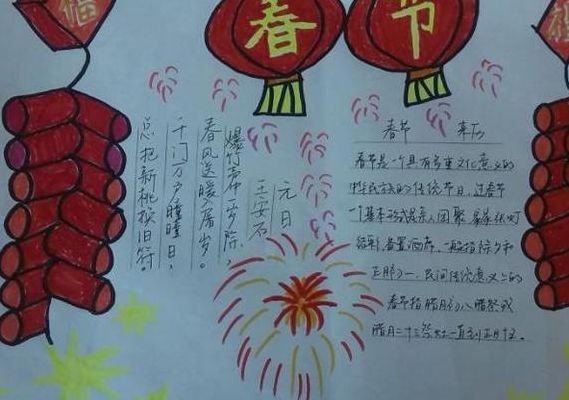 福
春节
元日
王安石
爆竹声中一岁除,
春风送暖屠
千门万户曈曈日,
总把新桃换旧符。
春节 来历
春节是一个具有多重文化意义的
中华民族的传统节日,过春节
一个基本形式是亲人团聚、张灯
结彩、备置酒席,一般指除夕和
正月初一,民间传统意义上的
春节指腊月初八腊祭或
腊月二十三祭灶一直到正月十五。